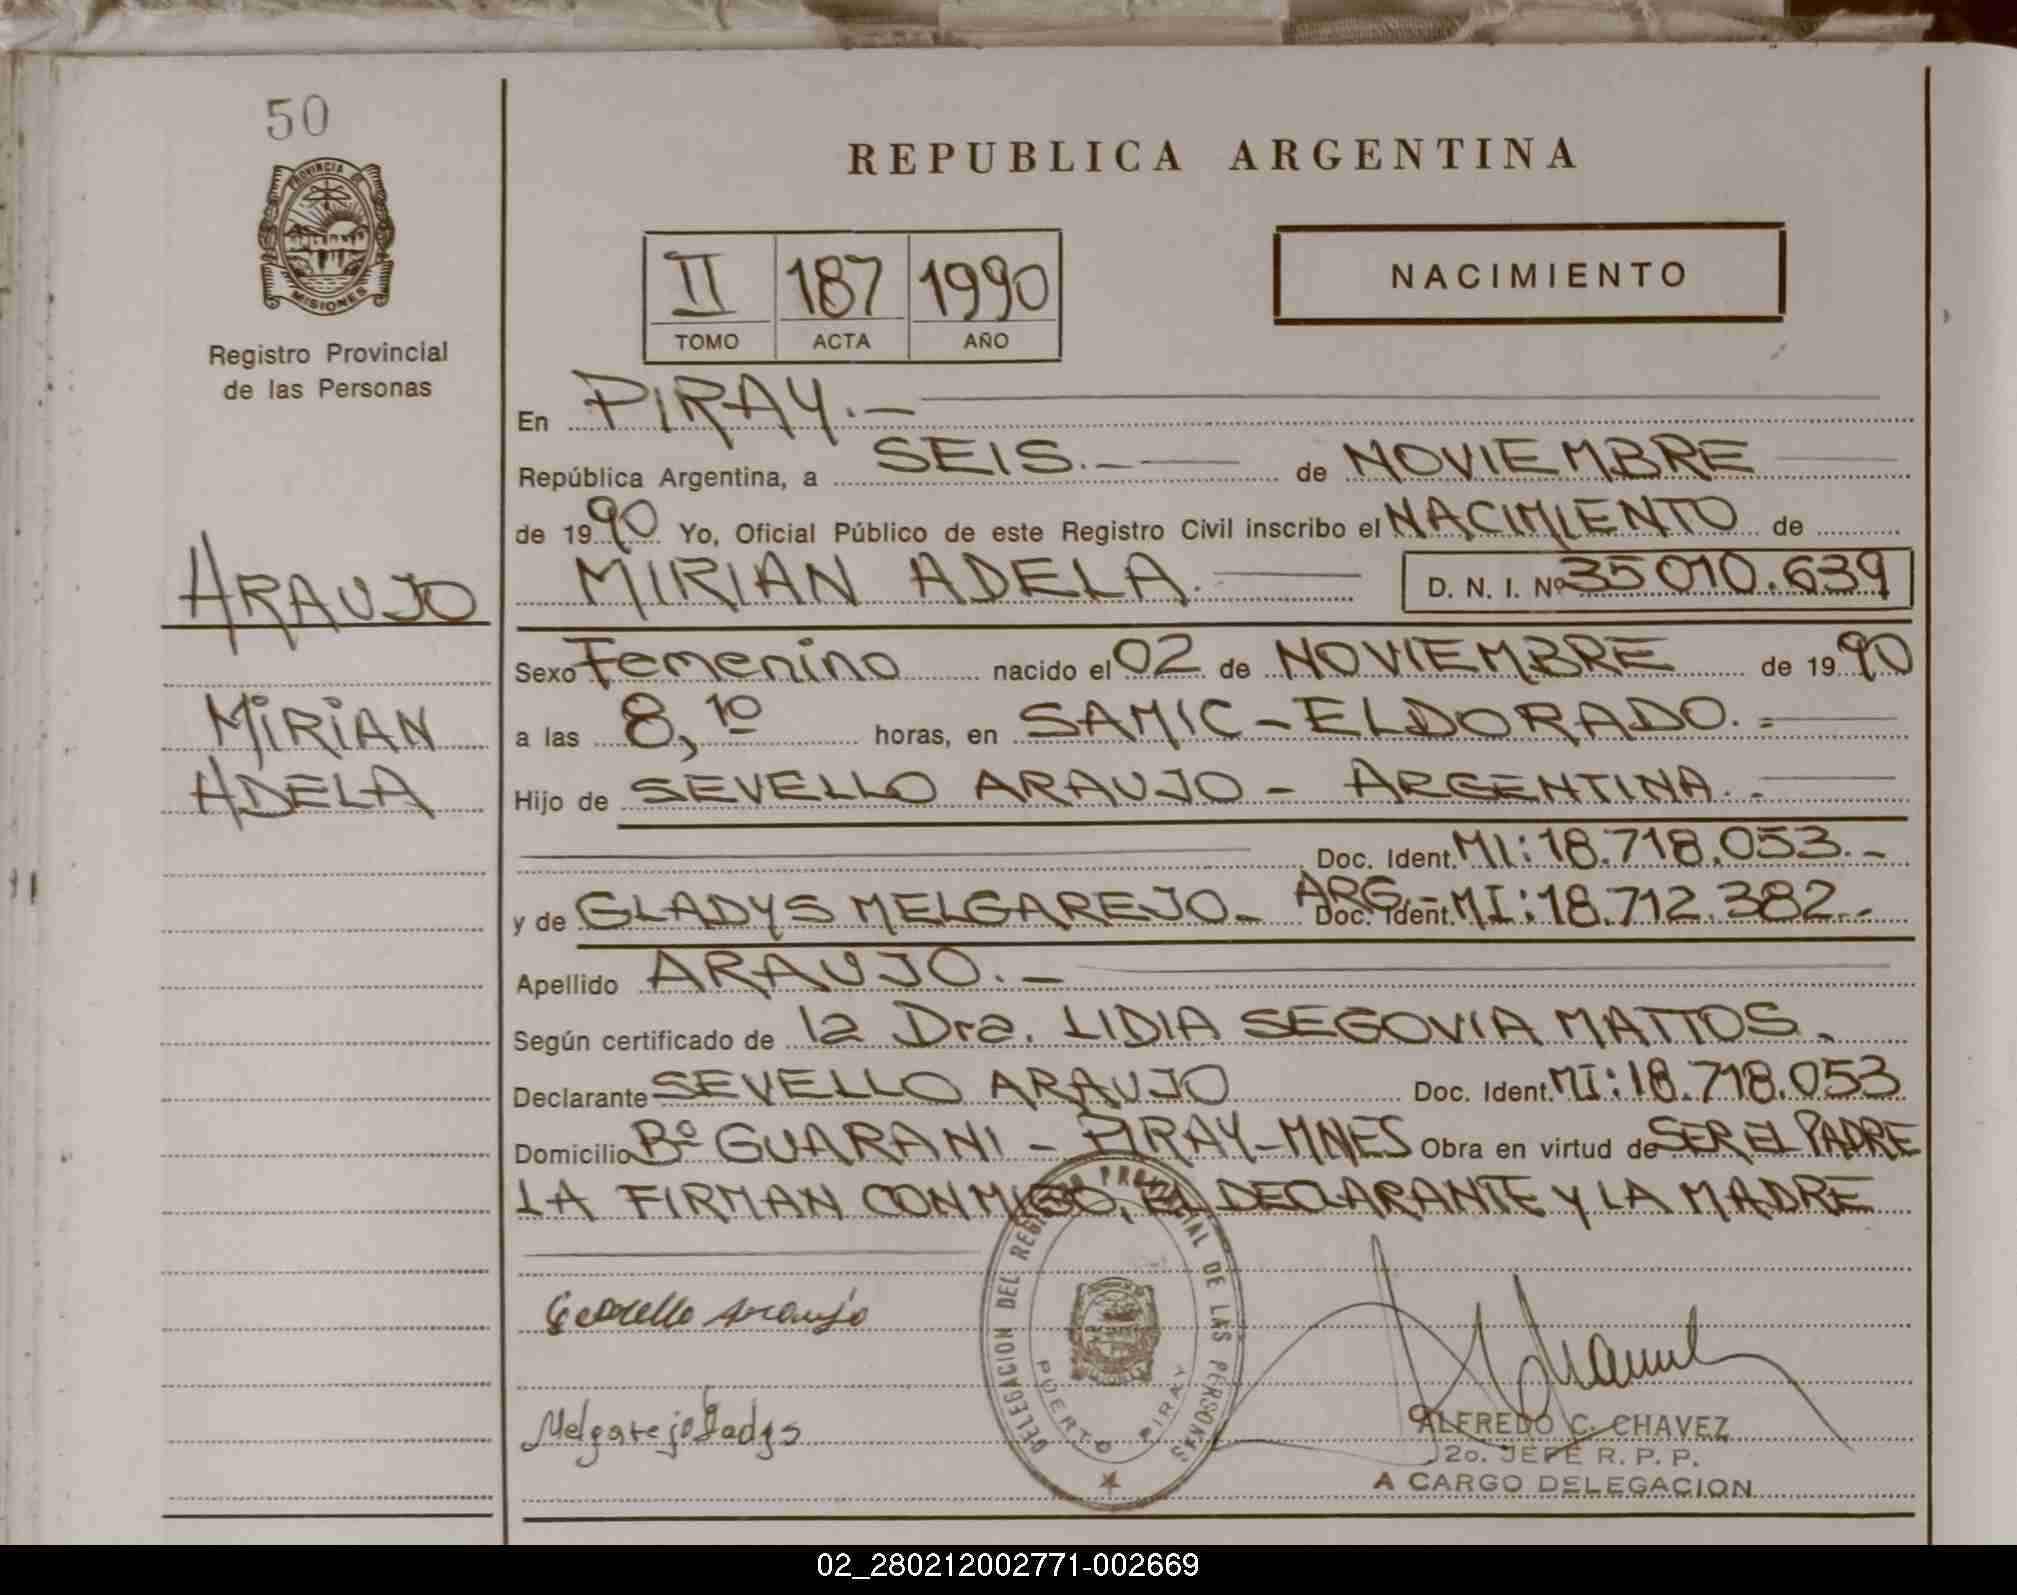 50
PROVINCIA DE
MISIONES
Registro Provincial
de las Personas
ARAUJO
MIRIAN
ADELA
REPUBLICA ARGENTINA
II 187 1990
TOMO ACTA AÑO
NACIMIENTO
En PIRAY.-
República Argentina, a SEIS.- de NOVIEMBRE
de 1990 Yo, Oficial Público de este Registro Civil inscribo el NACIMIENTO de
MIRIAN ADELA. D. N. I. Nº 35010.639
Sexo Femenino nacido el 02 de NOVIEMBRE de 1990
a las 8,10 horas, en SAMIC-ELDORADO.-
Hijo de SEVELLO ARAUJO - ARGENTINA.-
Doc. Ident. MI: 18.718.053.-
y de GLADYS MELGAREJO- ARG.- Doc. Ident. MI: 18.712.382.-
Apellido ARAUJO.-
Según certificado de la Dra. LIDIA SEGOVIA MATTOS.
Declarante SEVELLO ARAUJO Doc. Ident. MI: 18.718.053
Domicilio Bº GUARANI - PIRAY-MNES Obra en virtud de SER EL PADRE
LA FIRMAN CONMIGO, EL DECLARANTE Y LA MADRE
DELEGACION DEL REGISTRO PROVINCIAL DE LAS PERSONAS
PUERTO PIRAY
Sevello Araujo
Melgarejo Gladys
ALFREDO C. CHAVEZ
2o. JEFE R. P. P.
A CARGO DELEGACION
02_280212002771-002669